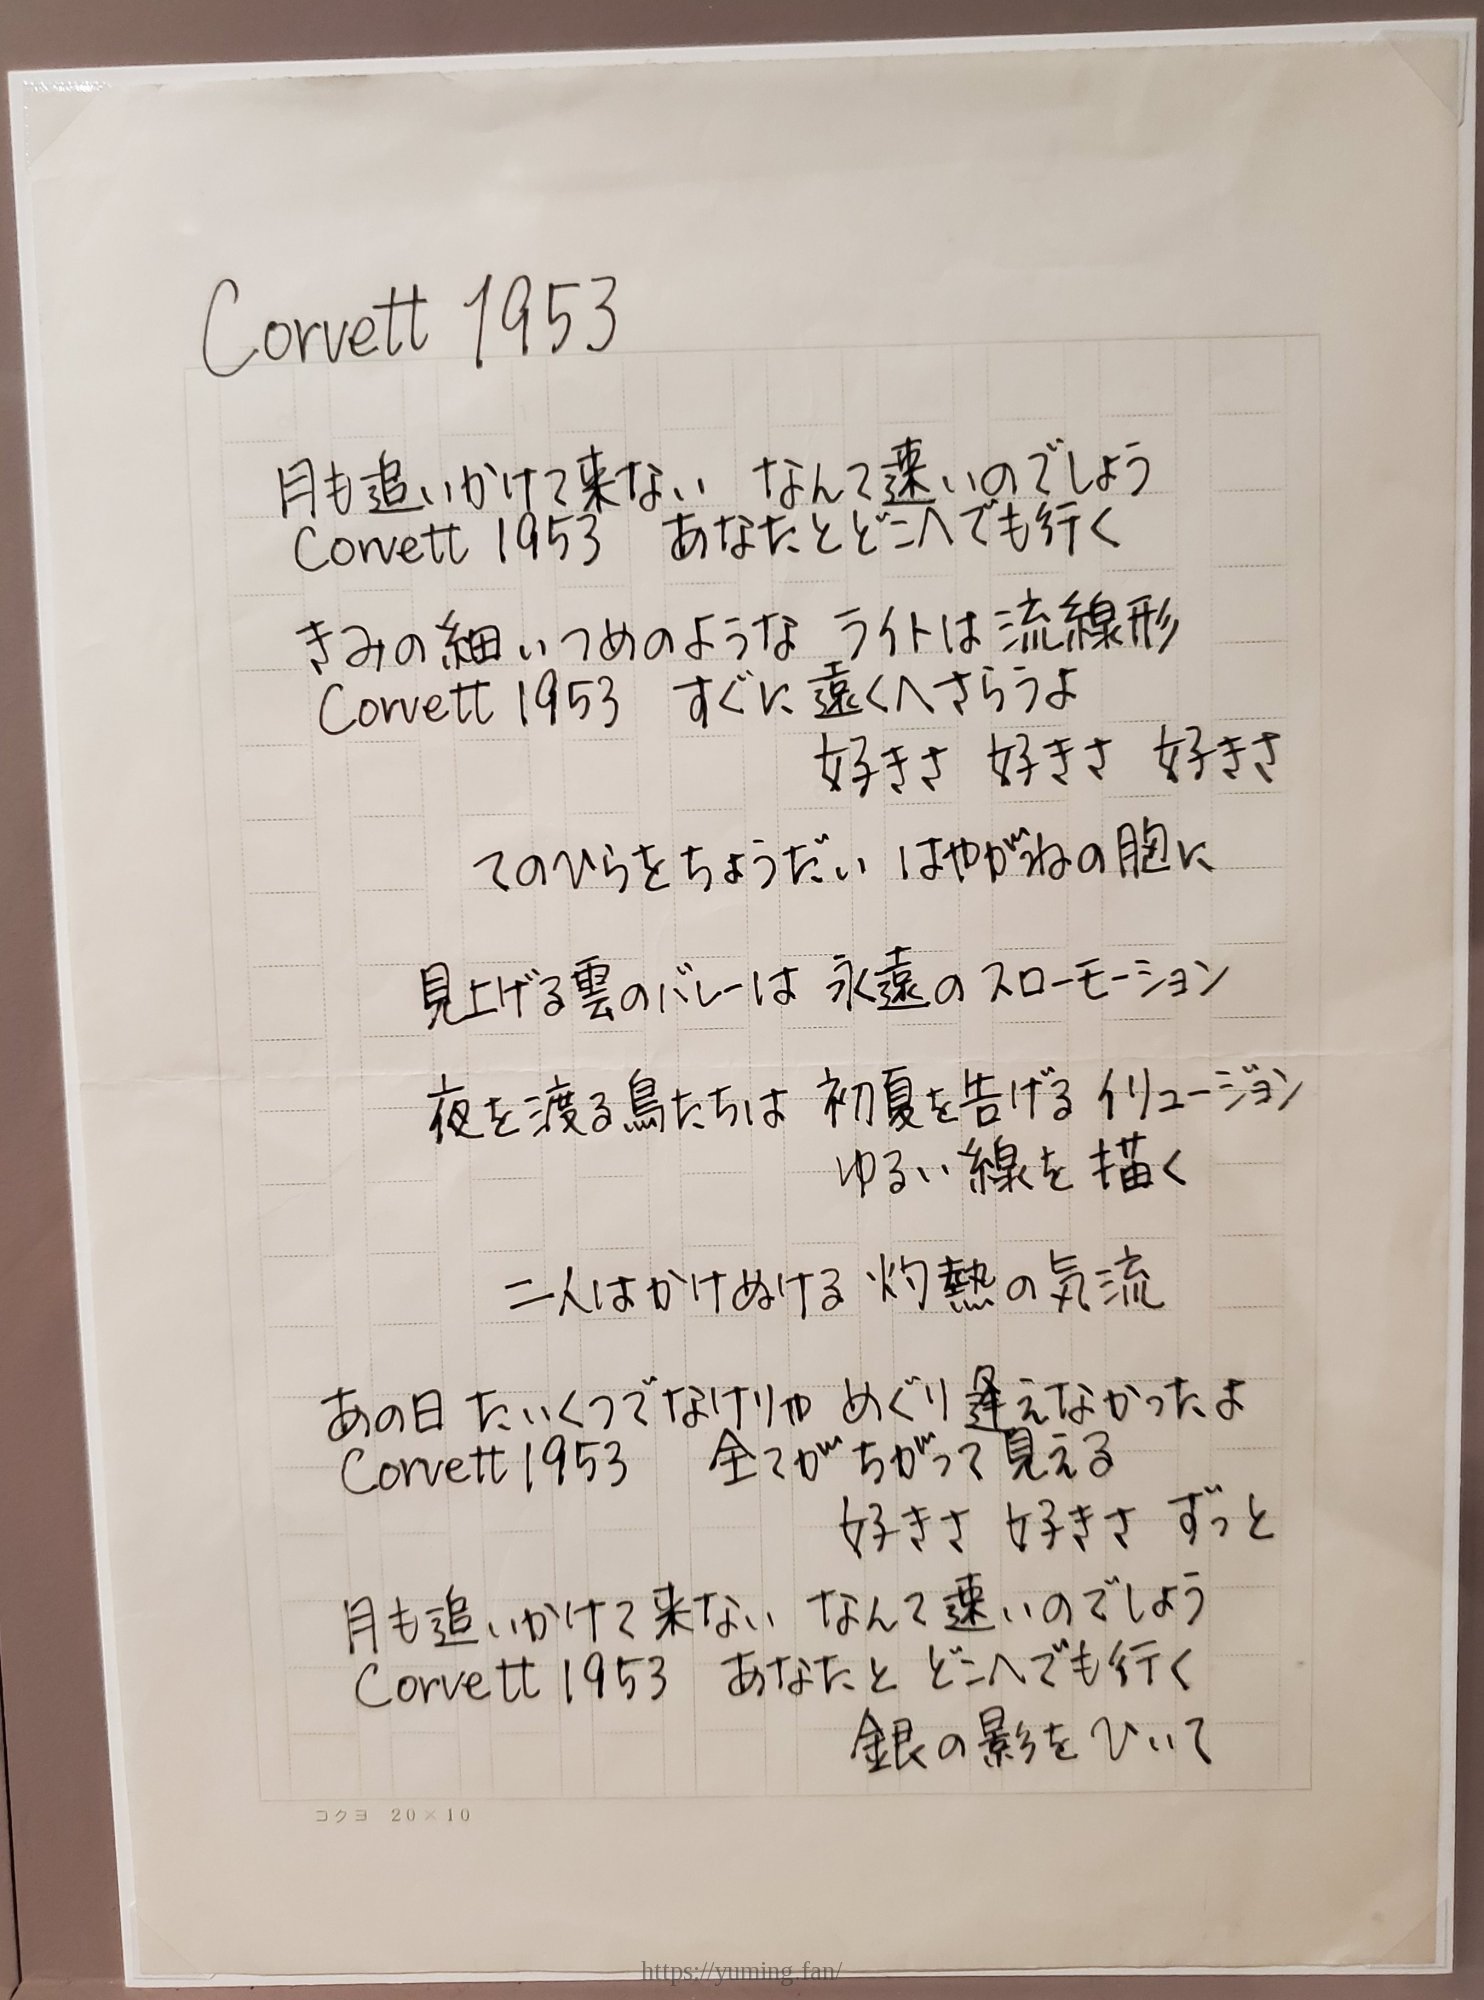 Corvett 1953
月も追いかけて来ない なんて速いのでしょう
Corvett 1953 あなたとどこへでも行く
きみの細いつめのような ライトは流線形
Corvett 1953 すぐに遠くへさらうよ
好きさ 好きさ 好きさ
てのひらをちょうだい はやがねの胸に
見上げる雲のバレーは 永遠のスローモーション
夜を渡る鳥たちは 初夏を告げるイリュージョン
ゆるい線を描く
二人はかけぬける 灼熱の気流
あの日 たいくつでなけりゃ めぐり逢えなかったよ
Corvett 1953 全てがちがって見える
好きさ 好きさ ずっと
月も追いかけて来ない なんて速いのでしょう
Corvett 1953 あなたと どこへでも行く
銀の影をひいて
コクヨ 20×10
https://yuming.fan/